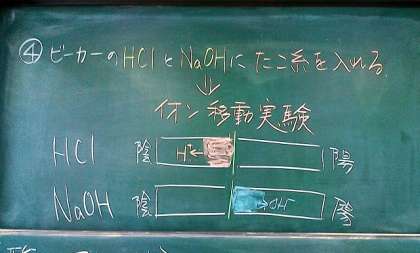 ④ビーカーのHClとNaOHにたこ糸を入れる.
⇓
イオン移動実験
HCl 陰 H⁺← 陽
NaOH 陰 →OH⁻ 陽